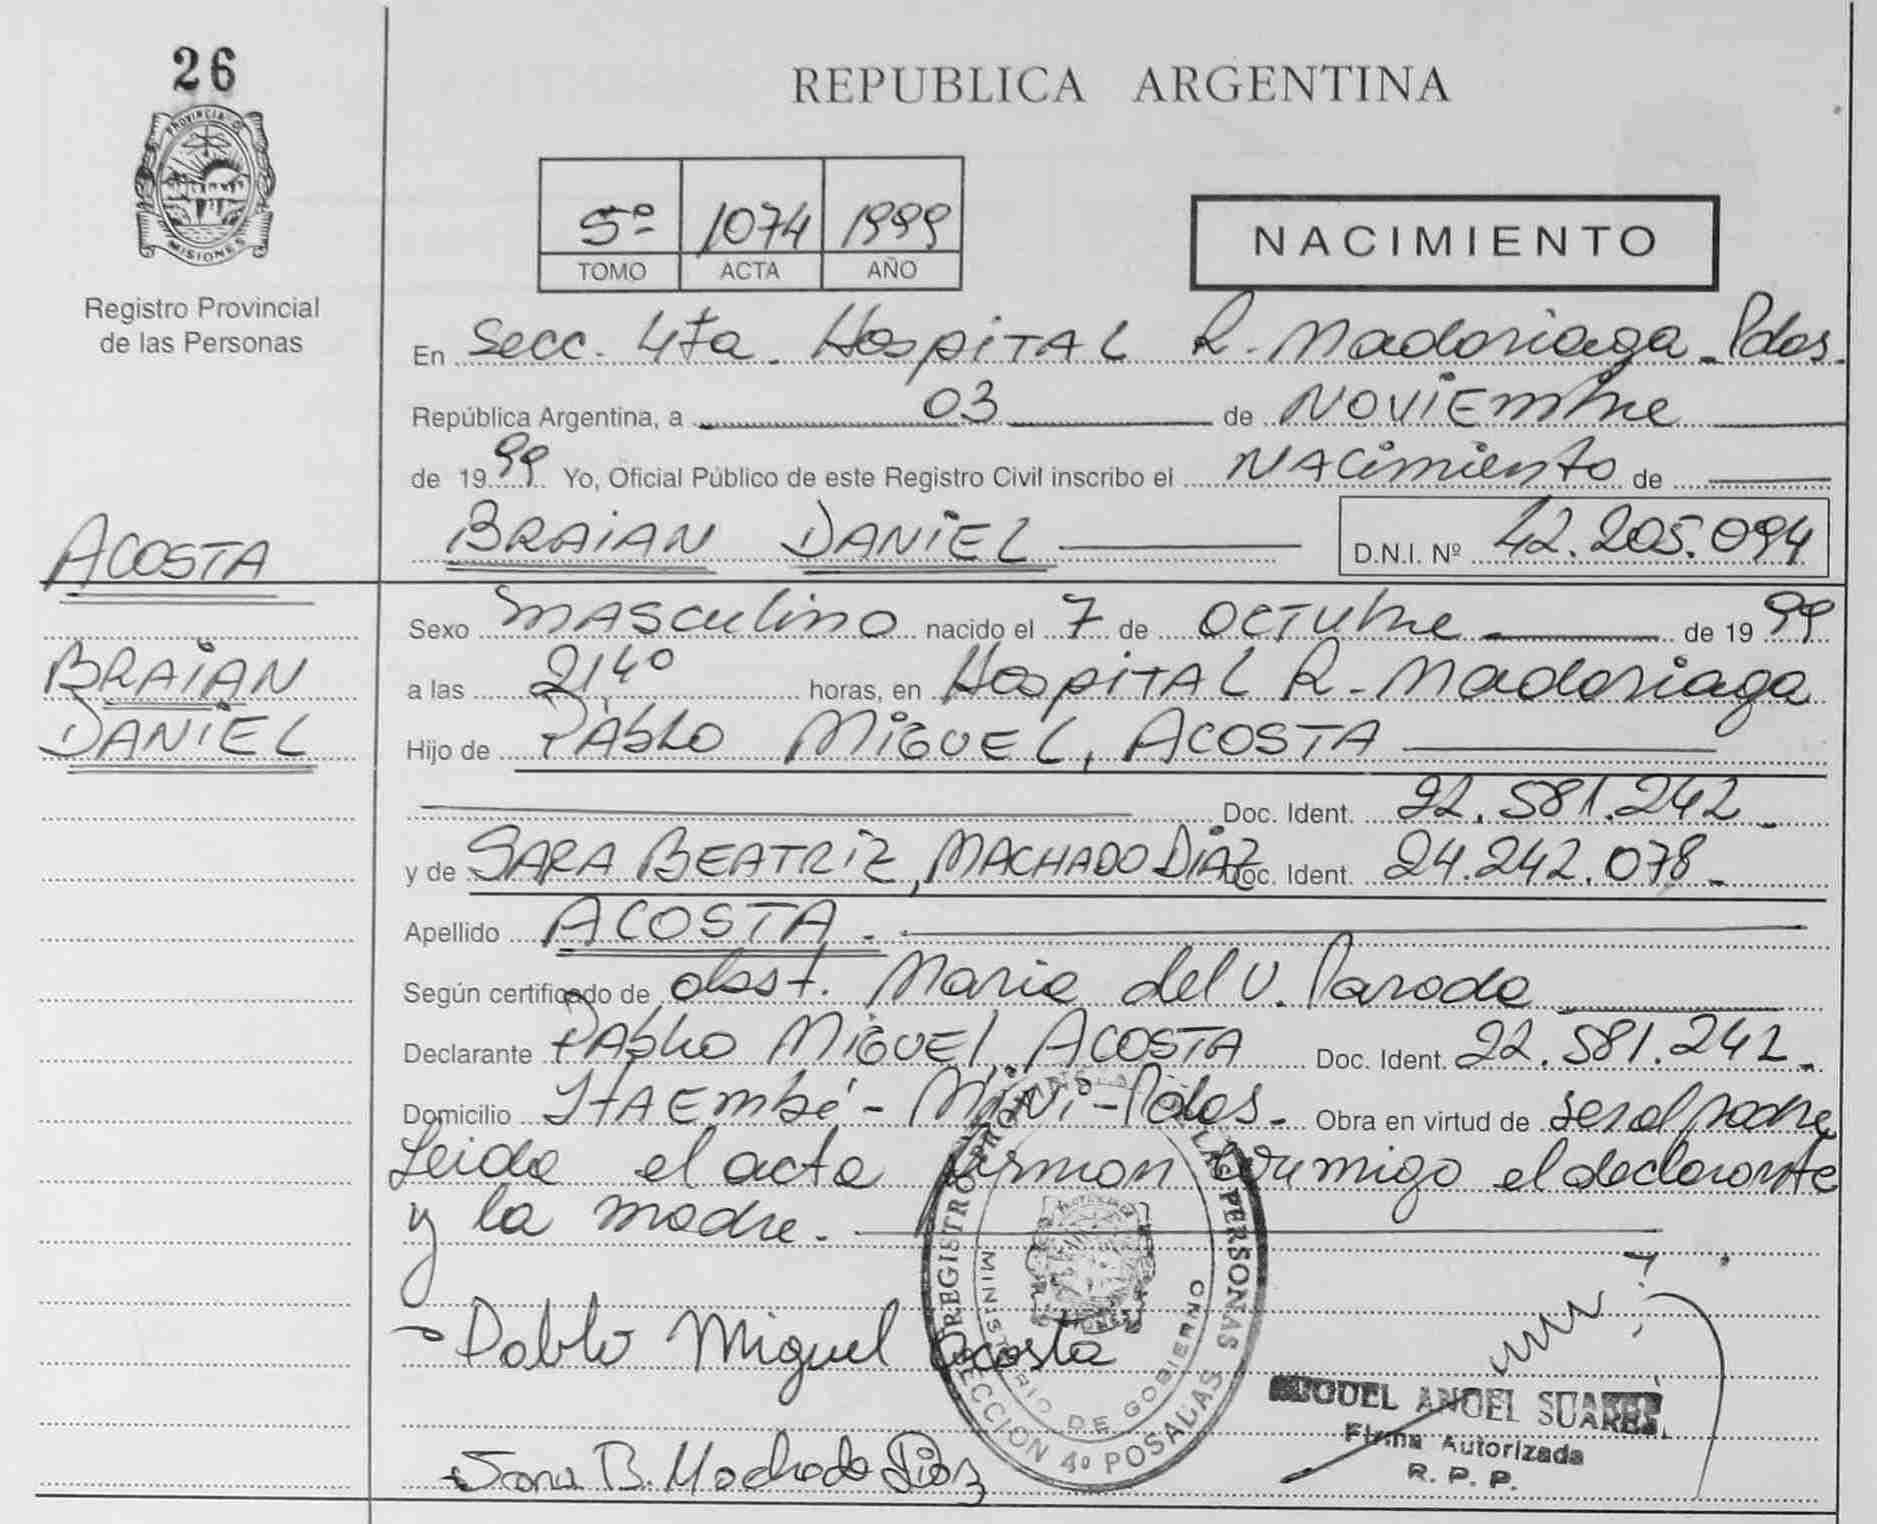 26
PROVINCIA DE
MISIONES
Registro Provincial
de las Personas
REPUBLICA ARGENTINA
5º 1074 1999
TOMO ACTA AÑO
NACIMIENTO
En Secc. 4ta. Hospital R. Madariaga - Pdas.
República Argentina, a 03 de Noviembre
de 1999 Yo, Oficial Público de este Registro Civil inscribo el Nacimiento de
BRAIAN DANIEL D.N.I. Nº 42.205.094
ACOSTA
BRAIAN
DANIEL
Sexo Masculino nacido el 7 de Octubre de 1999
a las 21⁴⁰ horas, en Hospital R. Madariaga
Hijo de Pablo Miguel, ACOSTA
Doc. Ident. 22.581.242
y de SARA BEATRIZ, MACHADO DIAZ Doc. Ident. 24.242.078
Apellido ACOSTA.
Según certificado de obst. Maria del V. Parodo
Declarante Pablo Miguel, ACOSTA Doc. Ident. 22.581.242.
Domicilio Itaembé - Miní - Pdas. Obra en virtud de ser el padre
Leida el acta firman conmigo el declarante
y la madre.
Pablo Miguel Acosta
Sara B. Machado Díaz
REGISTRO LAS PERSONAS
MINISTERIO DE GOBIERNO
SECCION 4º POSADAS
MIGUEL ANGEL SUAREZ
Firma Autorizada
R. P. P.